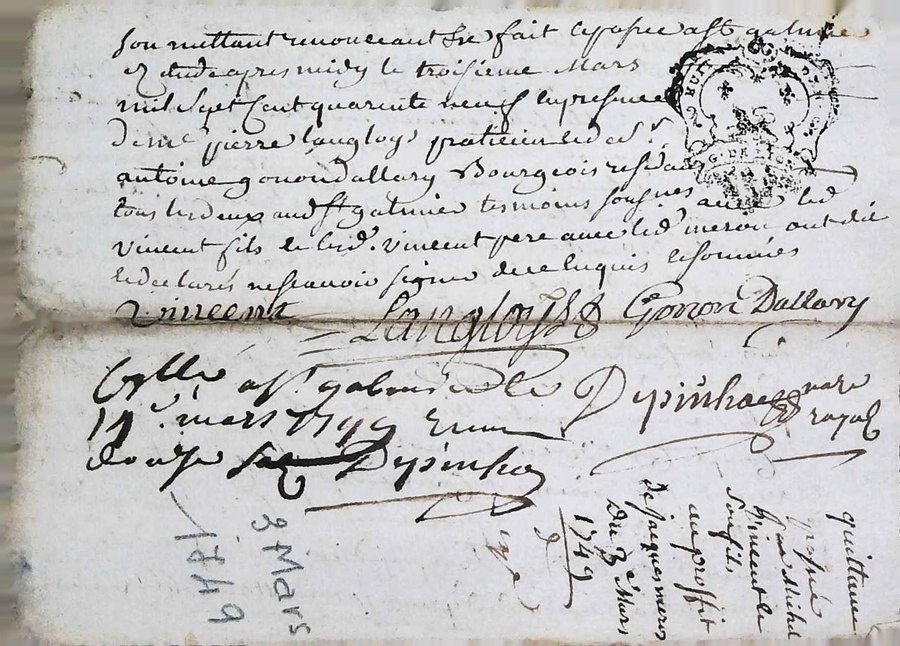 soumettant renonceant &c fait et passé a St galmier
et etude apres midy le troisieme Mars
mil Sept Cent quarente neuf en presence
de me pierre Langloys praticien et de Sr.
antoine gonon dallary Bourgeois resid
tous les deux aud St galmier temoins sousgnes avec led
vincent fils et led. vincent pere avec led. meron ont dit
et declarés ne scavoir signer de ce enquis et sommés
Vincent Langloys Gonon Dallary
Collé a St galmier le Depinhac nore
14e. mars 1749 Reçu royal
douze Depinhac
quittance
passé
par Michel
Vincent et
son fils
au proffit
de jacques meron
Du 3e Mars
1749
3 Mars
1749